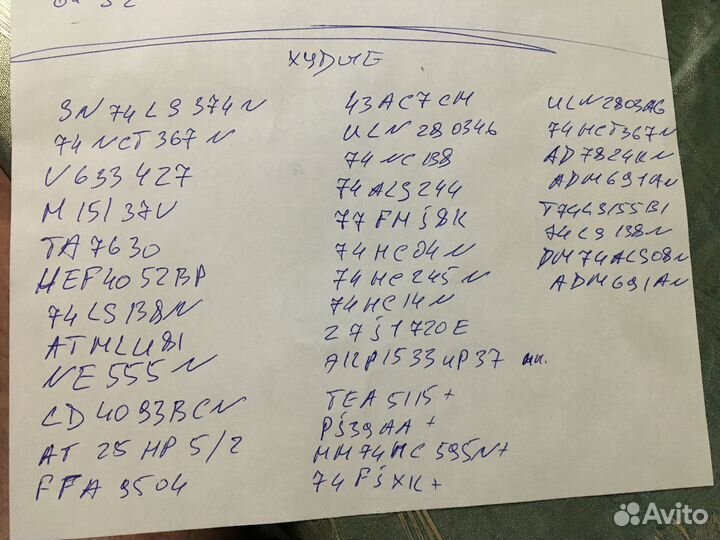 ХУДЫЕ
SN74LS374N
74NCT367N
U633427
M15137V
TA7630
HEF4052BP
74LS138N
ATMLU81
NE555N
CD4093BCN
AT 25 HP 5/2
FFA9504
43AC7CH
ULN2803AG
74NC138
74ALS244
77FMj8K
74HC04N
74HC245N
74HC14N
27j1720E
Л12P1533ИР37 мк.
TEA5115+
Pj39AA+
MM74HC595N+
74FjXK+
ULN2803AG
74HCT367N
AD7824KN
ADM691AN
T74LS155B1
74LS138N
DM74ALS08N
ADM691AN
Avito